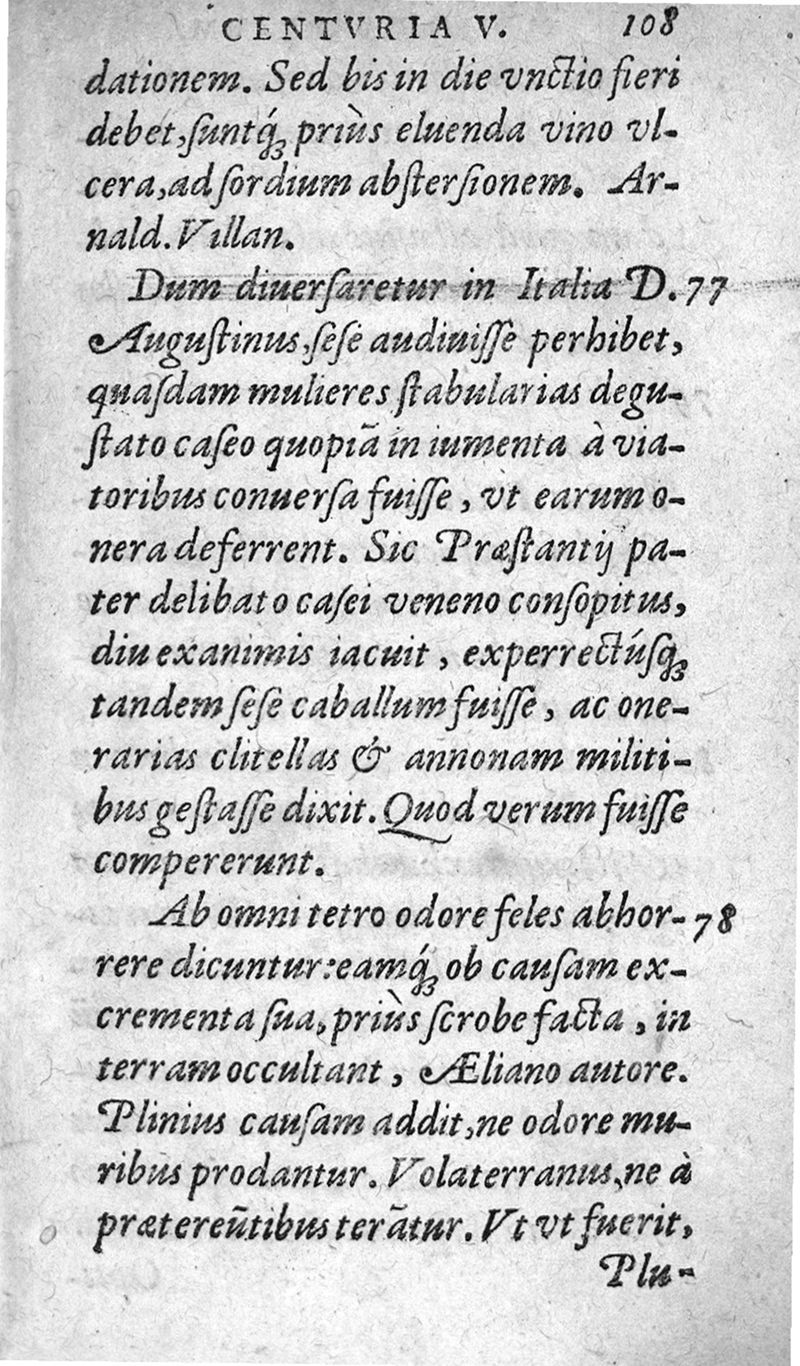 CENTVRIA V. 108
dationem. Sed bis in die vnctio fieri
debet, ſuntq́ꝫ priùs eluenda vino vl-
cera, ad ſordium abſterſionem. Ar-
nald. Villan.
Dum diuerſaretur in Italia D. 77
Auguſtinus, ſeſe audiuiſſe perhibet,
quaſdam mulieres ſtabularias degu-
ſtato caſeo quopiã in iumenta à via-
toribus conuerſa fuiſſe, vt earum o-
nera deferrent. Sic Præſtantij pa-
ter delibato caſei veneno conſopitus,
diu exanimis iacuit, experrectúſqꝫ
tandem ſeſe caballum fuiſſe, ac one-
rarias clitellas & annonam militi-
bus geſtaſſe dixit. Quod verum fuiſſe
compererunt.
Ab omni tetro odore feles abhor- 78
rere dicuntur: eamq́ꝫ ob cauſam ex-
crementa ſua, priùs ſcrobe facta, in
terram occultant, Æliano autore.
Plinius cauſam addit, ne odore mu-
ribus prodantur. Volaterranus, ne à
prætereũtibus terãtur. Vt vt fuerit,
Plu-